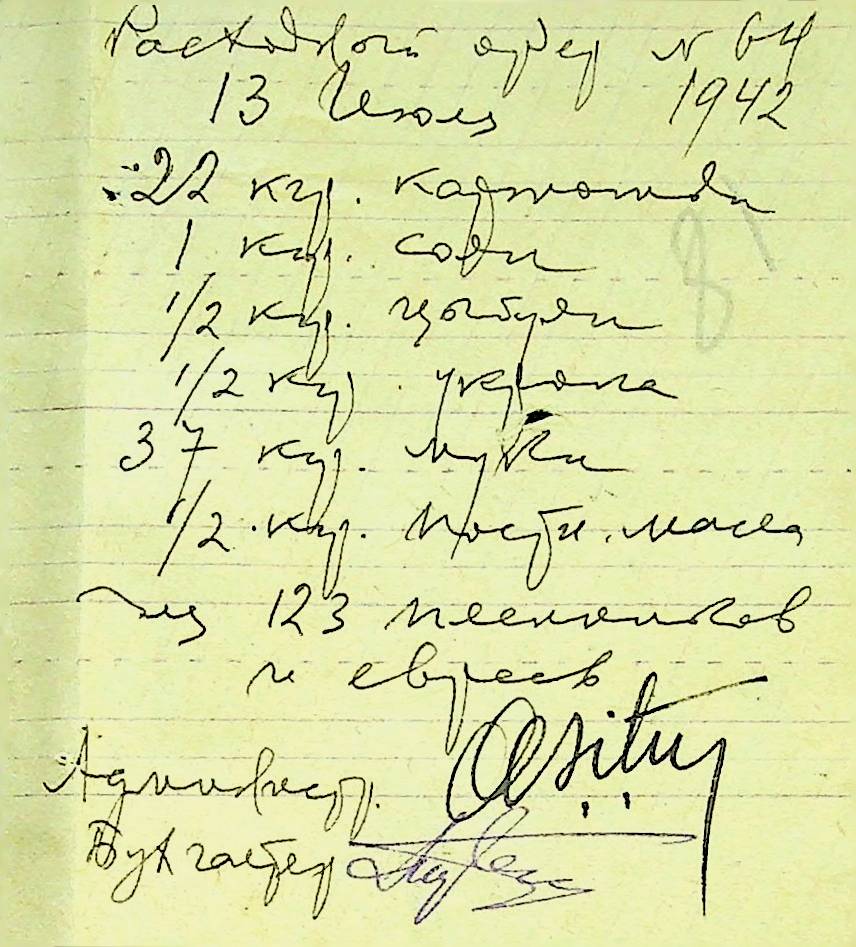 Расходовый ордер № 64
13 Июля 1942
22 кгр. картошки
1 кгр. соли
1/2 кгр. цыбули
1/2 кгр. укропа
37 кгр. муки
1/2 кгр. постн. масла
для 123 пленников
и евреев
Администр.
Бухгалтер
81